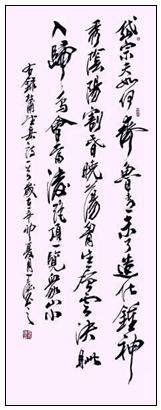 岱宗夫如何齊魯青未了造化鍾神
秀陰陽割昏曉蕩胸生層雲決眥
入歸鳥會當凌絕頂一覽眾山小
右錄杜甫望岳詩歲在辛卯夏月